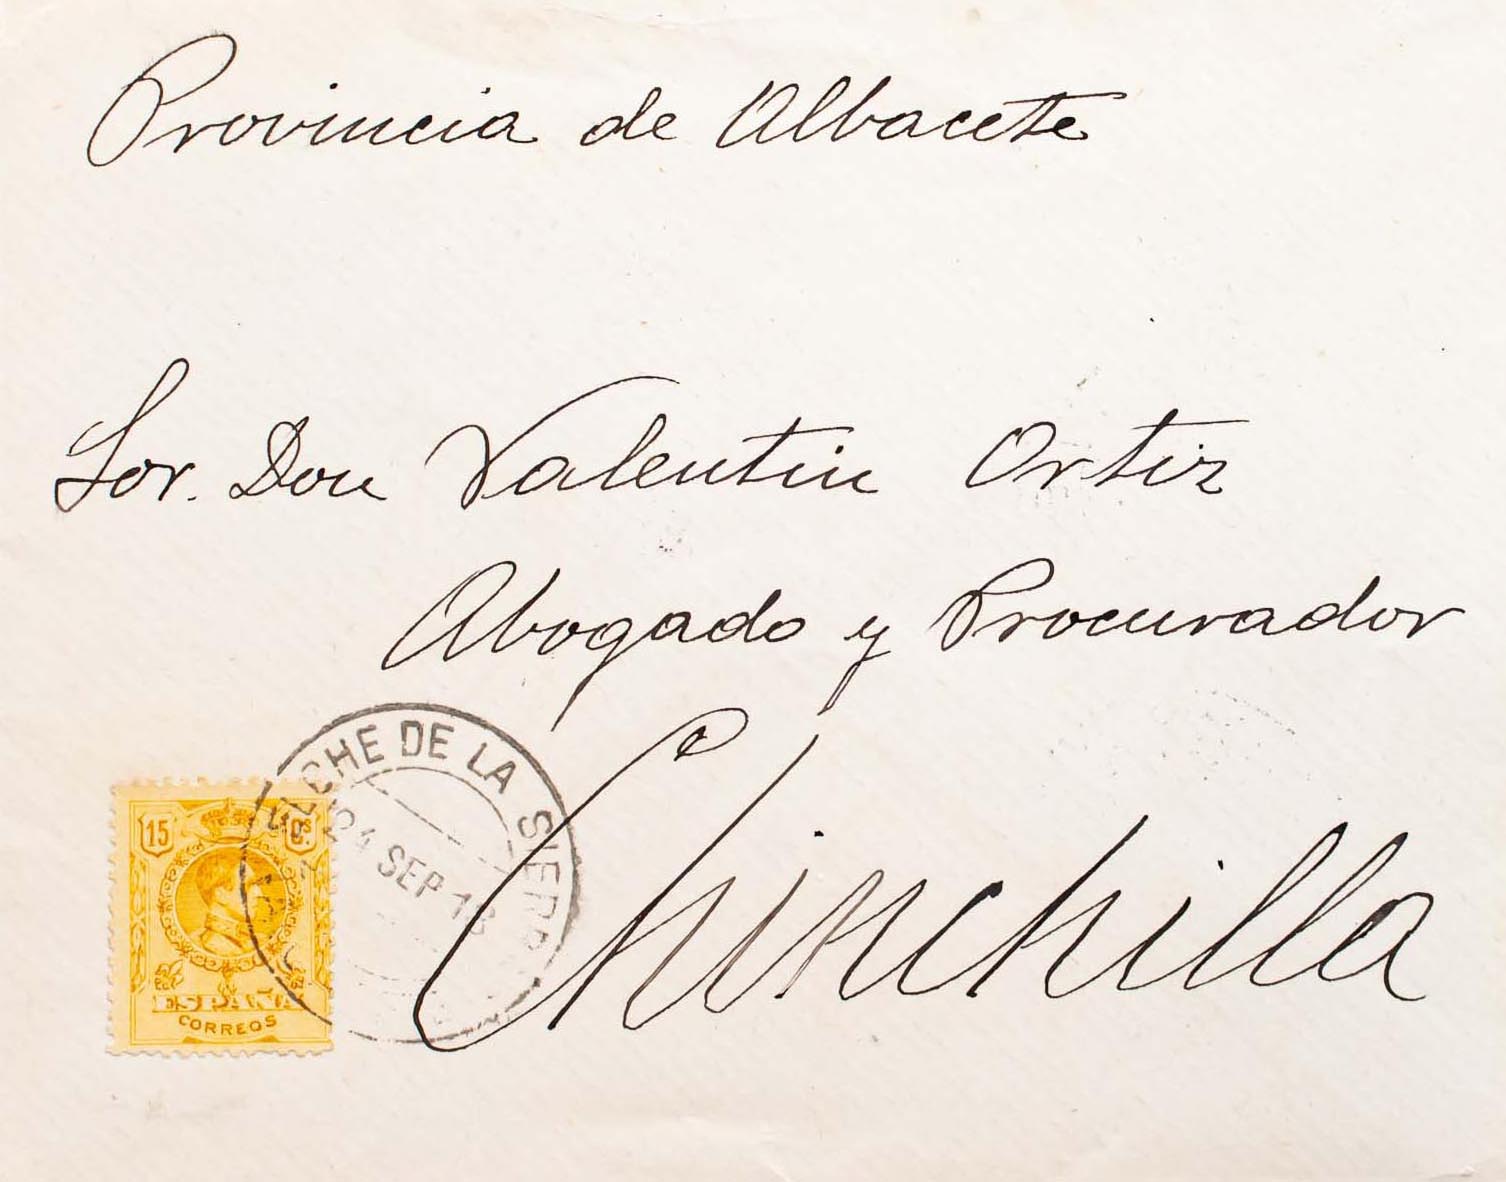 Provincia de Albacete
Sor. Don Valentin Ortiz
Abogado y Procurador
Chinchilla
ELCHE DE LA SIERRA
24 SEP 18
15 Cs
ESPAÑA
CORREOS